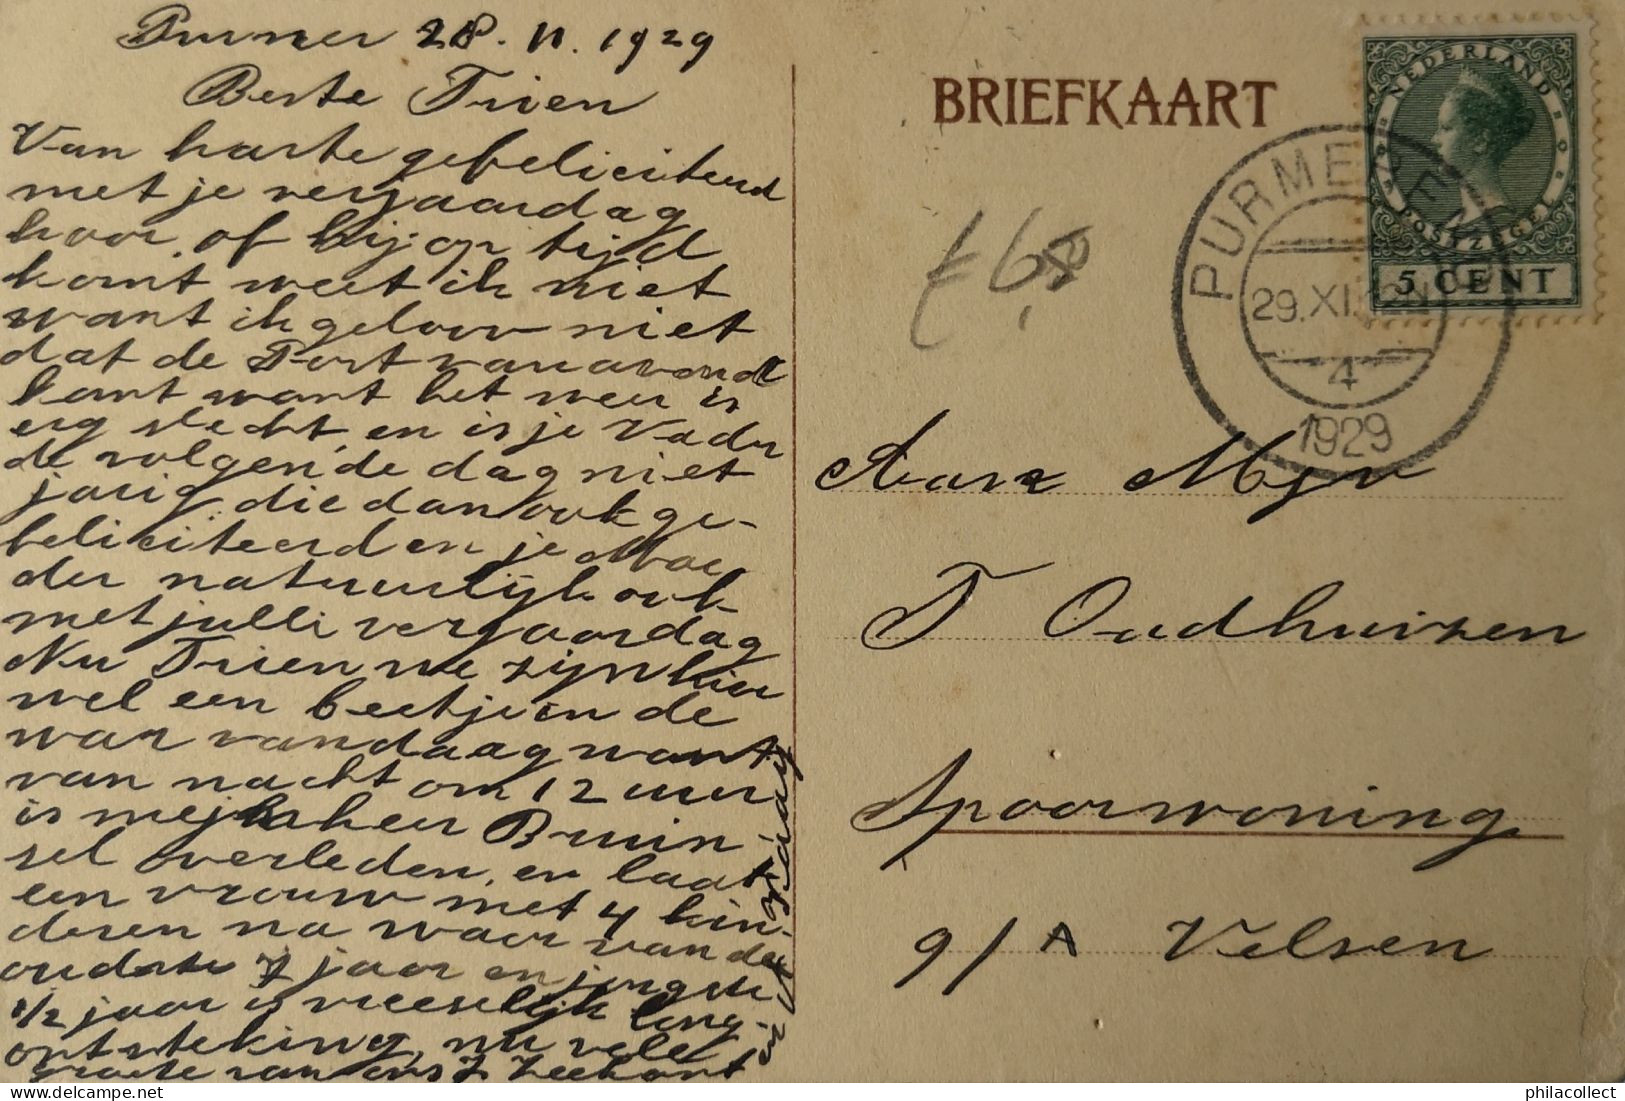 Purmer 28.11.1929
Beste Trien
Van harte gefeliciteerd
met je verjaardag
hoor, of hij op tijd
komt weet ik niet
want ik geloov niet
dat de Post van avond
komt want het weer is
erg slecht, en is je Vader
de volgende dag niet
jarig, die dan ook ge-
feliciteerd en je Moe
der natuurlijk ook
met julli verjaardag
Nu Trien we zijn hier
wel een beetje in de
war vandaag want
van nacht om 12 uur
is mejnheer Bruin
sel overleden, en laat
een vrouw met 4 kin-
deren na waar van de
oudste 7 jaar en jongste
1/2 jaar is vreeselijk long-
ontsteking, nu vele
groete van ons
BRIEFKAART
NEDERLAND
POSTZEGEL
5 CENT
PURMEREND
29.XI.12N
4
1929
£ 6,
Aan Mejv
T Oudhuizen
Spoorwoning
g/A Velsen
philacollect